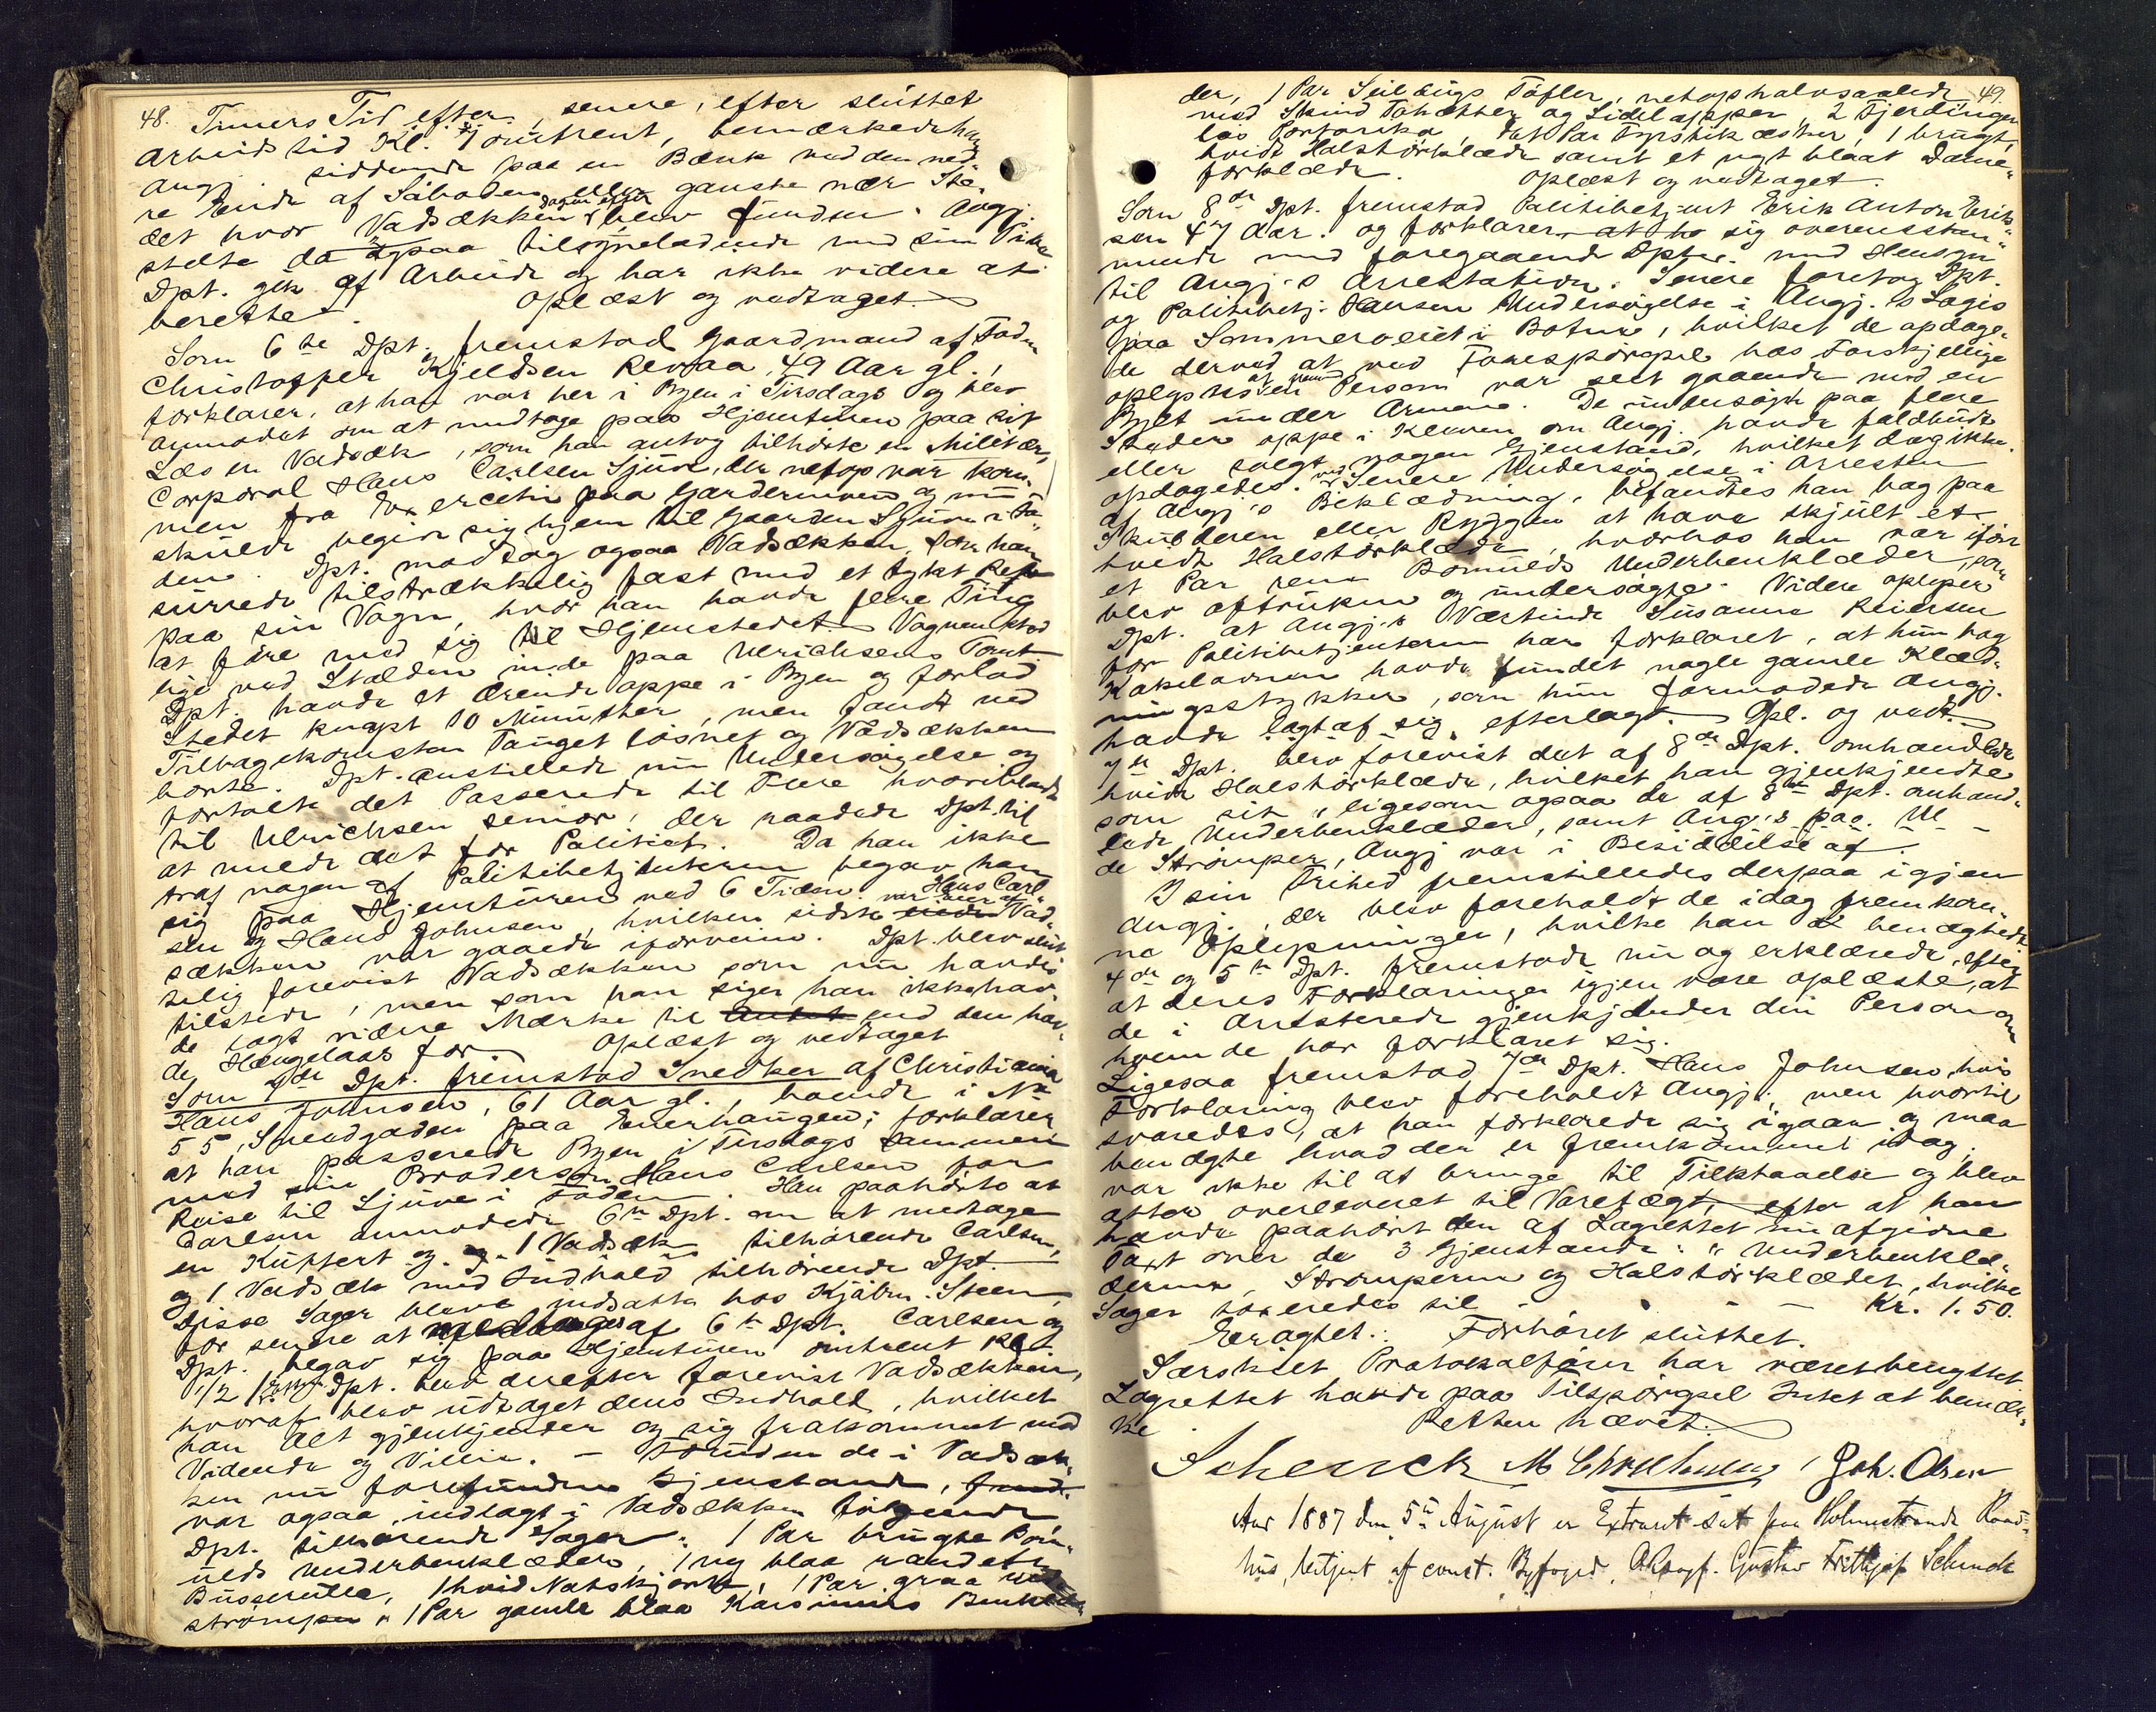 48. Timers Tid efter, senere, efter sluttet
Arbeidstid Kl. 7 omtrent, bemærkede han
Angj. siddende paa en Bænk ved den ned-
re Ende af Saboden eller ganske nær Ste-
det hvor Vadsækken dagen efter blev funden. Angj.
stelte da ogsaa tilsyneladende med sin Pibe
Dpt. gik af Arbeide og har ikke videre at
berette. Oplæst og vedtaget.
Som 6te Dpt. fremstod Gaardmand af Foden
Christopher Kjeldsen Revaa, 49 Aar gl.,
forklarer, at han var her i Byen i Tirsdags og blev
anmodet om at medtage paa Hjemturen paa sit
Læs en Vadsæk, som han antog tilhørte en Militær,
Corporal Hans Carlsen Sjuve, der netop var kom-
men fra Exercitie paa Gardermoen og nu
skulde begive sig hjem til Gaarden Sjuve i Fo-
den. Dpt. modtog ogsaa Vadsækken, som han
surrede tilstrækkelig fast med et tykt Reb
paa sin Vogn, hvor han havde flere Ting
at føre med sig til Hjemstedet. Vognen stod
lige ved Stalden inde paa Ulrichsens Tomt.
Dpt. havde et Ærende oppe i Byen og forlod
Stedet knapt 10 Minutter, men fandt ved
Tilbagekomsten Tauget løsnet og Vadsækken
borte. Dpt. anstillede nu Undersøgelse og
fortalte det Passerede til Flere hvoriblandt
til Ulrichsen senior, der raadede Dpt. til
at melde det for Politiet. Da han ikke
traf nogen af Politibetjenterne begav han
sig paa Hjemturen ved 6 Tiden. Hans Carl-
sen og Hans Johnsen, hvilken sidste var eier af Vad-
sækken var gaaede iforveien. Dpt. blev slut-
telig forevist Vadsækken som nu havdes
tilstede, men som han siger han ikke hav-
de lagt videre Mærke til end den hav-
de Hængelaas for. Oplæst og vedtaget
Som 7de Dpt. fremstod Snedker af Christiania
Hans Johnsen, 61 Aar gl., boende i No
55, Smedgaden paa Enerhaugen; forklarer
at han passerede Byen i Tirsdags sammen
med sin Brodersøn Hans Carlsen paa
Reise til Sjuve i Foden. Han paahørte at
Carlsen anmodede 6te Dpt. om at medtage
en Kuffert og 1 Vadsæk tilhørende Carlsen,
og 1 Vadsæk med Indhold tilhørende Dpt.
Disse Sager bleve indsatte hos Kjøbm. Steen,
for senere at af 6te Dpt. Carlsen og
Dpt. begav sig paa Hjemturen omtrent Kl.
1/2 Dpt. blev derefter forevist Vadsækken,
hvoraf blev udtaget dens Indhold, hvilket
han Alt gjenkjender og sig frakommet mod
Vidende og Villie. – Foruden de i Vadsæk-
ken nu forefundne Gjenstande,
var ogsaa indlagt i Vadsækken følgende
Dpt. tilhørende Sager: 1 Par brugte Bom-
ulds Underbenklæder, 1 ny blaa randet
Busserulle, 1 hvid Natskjorte, 1 Par graa
strømper, 1 Par gamle blaa Benklæ-
49.
der, 1 Par Seildugs Tøfler, netop halvsaalede
med Skind Tahætter og Sidelapper, 2 Fjerdinger
løs Portoriko, et Par Fyrstikæsker, 1 brugt,
hvidt Halstørklæde samt et nyt blaat Dame-
forklæde. Oplæst og vedtaget.
Som 8de Dpt. fremstod Politibetjent Erik Anton Erik-
sen 47 Aar. og forklarer sig overensstem-
mende med foregaaende Dpter. med Hensyn
til Angj.s Arrestation. Senere foretog Dpt.
og Politibetj. Hansen Undersøgelse i Angj.s Logis
paa Sommerveiet i Botne, hvilket de opdage-
de derved at ved Forespørgsel hos Forskjellige
oplystes at en fremmed Person var seet gaaende med en
Bylt under Armene. De undersøgte paa flere
Steder oppe i Kleven om Angj. havde falbudt
eller solgt nogen Gjenstand, hvilket dog ikke
opdagedes. Ved senere Undersøgelse i Arresten
af Angj.s Beklædning, befandtes han bag paa
Skulderen eller Ryggen at have skjult et
hvidt Halstørklæde, hvorhos han var iført
et Par rene Bomulds Underbenklæder, som
blev aftrukne og undersøgte. Videre oplyser
Dpt. at Angj.s Værtinde Susanne Reiersen
for Politibetjenterne har forklaret, at hun bag
Kakelovnen havde fundet nogle gamle Klæd-
ningsstykker, som hun formodede Angj.
havde lagt af sig efterlagt. Opl. og vedt.
7de Dpt. blev forevist det af 8de Dpt. omhandlede
hvide Halstørklæde, hvilket han gjenkjendte
som sit, ligesom ogsaa de af 8de Dpt. omhand-
lede Underbenklæder, samt Angj.s paa.
de Strømper, Angj var i Besiddelse af.
I sin Frihed fremstilledes derpaa igjen
Angj., der blev foreholdt de idag fremkom-
ne Oplysninger, hvilke han benægtede.
4de og 5te Dpt. fremstode nu og erklærede, efter
at deres Forklaringer igjen vare oplæste, at
de i Arresterede gjenkjender den Person om
hvem de har forklaret sig.
Ligesaa fremstod 7de Dpt. Hans Johnsen, hvis
Forklaring blev foreholdt Angj., men hvortil
svaredes, at han forklarede sig igaar og maa
benægte hvad der er fremkommet idag,
var ikke til at bringe til Tilstaaelse og blev
atter overleveret til Varetægt, efter at han
havde paahørt den af Lagrettet nu afgivne
Taxt over de 3 Gjenstande: Underbenklæ-
derne, Strømperne og Halstørklædet, hvilke
Sager taxeredes til – – – Kr. 1.50.
Eragtet: Forhøret sluttet.
Særskilt Protokolfører har været benyttet.
Lagrettet havde paa Tilspørgsel Intet at bemær-
ke. Retten hævet.
Schenck Joh. Olsen
Aar 1887 den 5te August er Extraret sat paa Holmestrands Raad-
hus, betjent af const. Byfoged, Gustav Frithjof Schenck